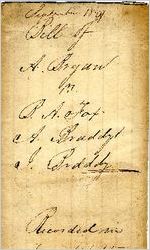 September 18
Bill of
A. Bryan
R A. Fox
A Braddy
J. Braddy
Recorded in